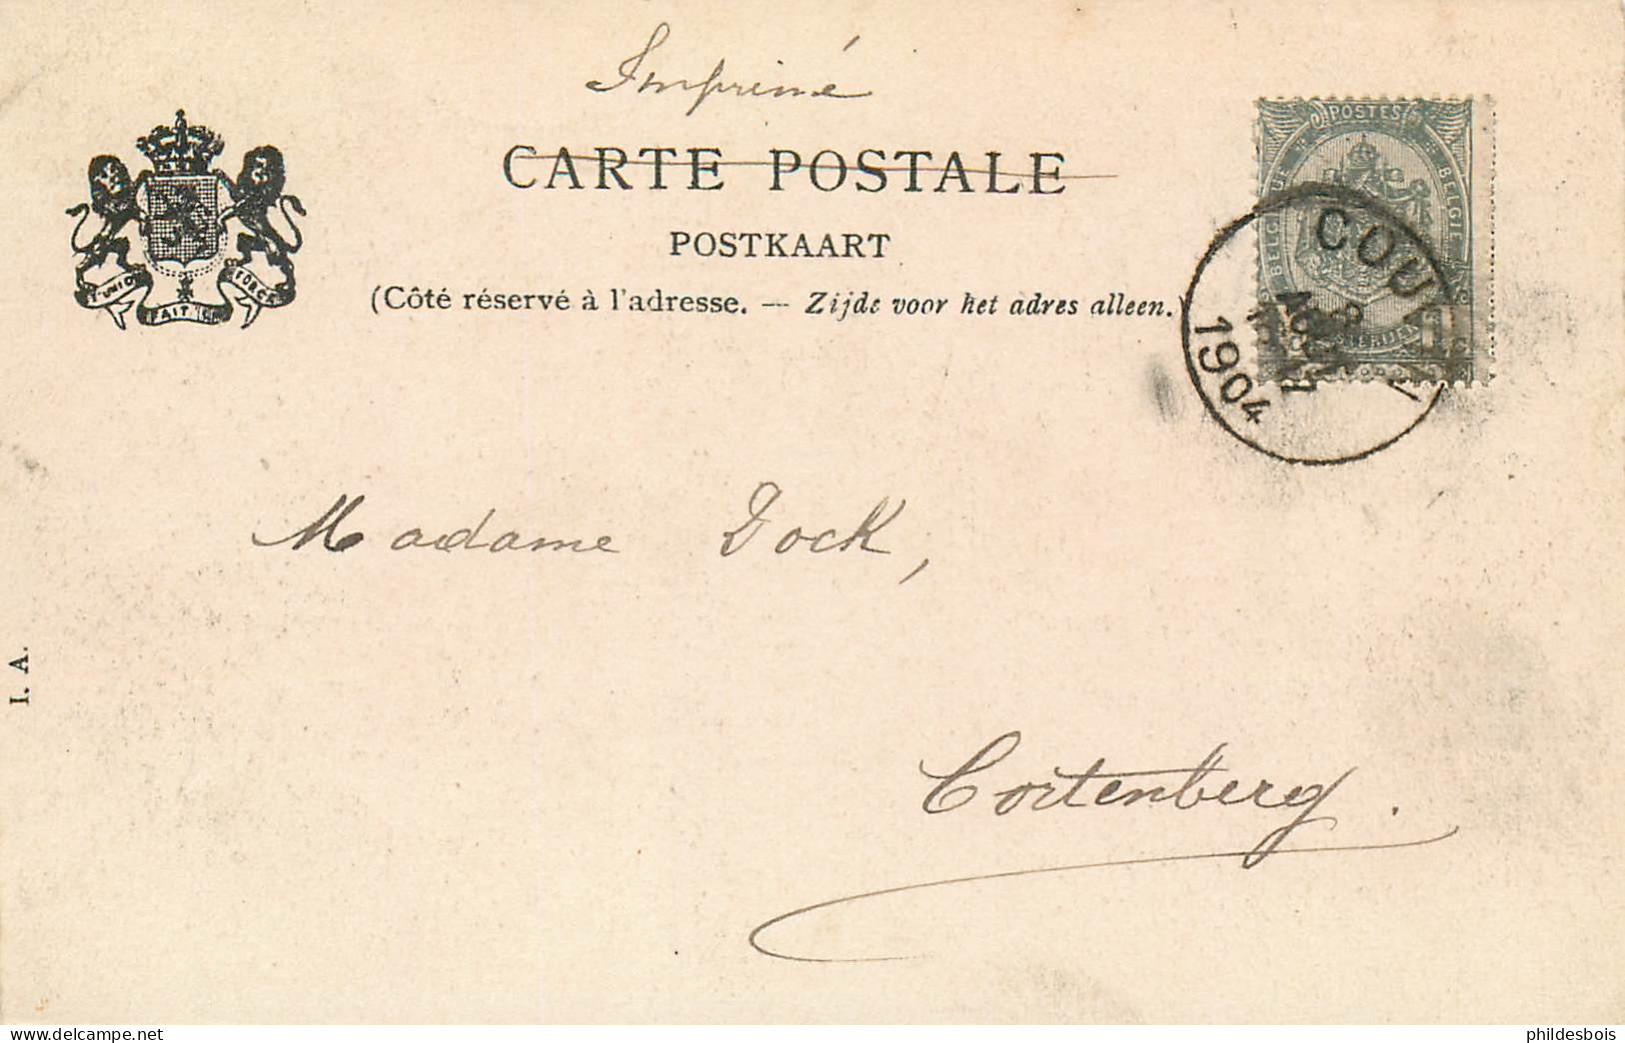 Imprimé
CARTE POSTALE
POSTKAART
(Côté réservé à l'adresse. — Zijde voor het adres alleen.)
L'UNION FAIT LA FORCE
POSTES
BELGIQUE
BELGIE
1904
Madame Dock,
Cortenberg.
I. A.
delcampe.net
phildesbois